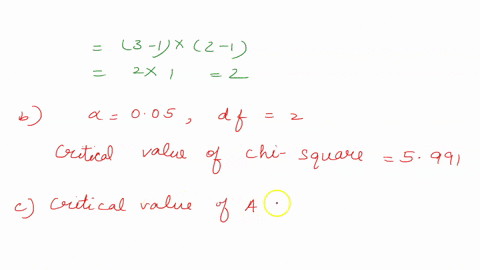 = (3-1) × (2-1)
= 2 × 1 = 2
b) α = 0.05 , df = 2
Critical value of chi-square = 5.991
c) Critical value of A